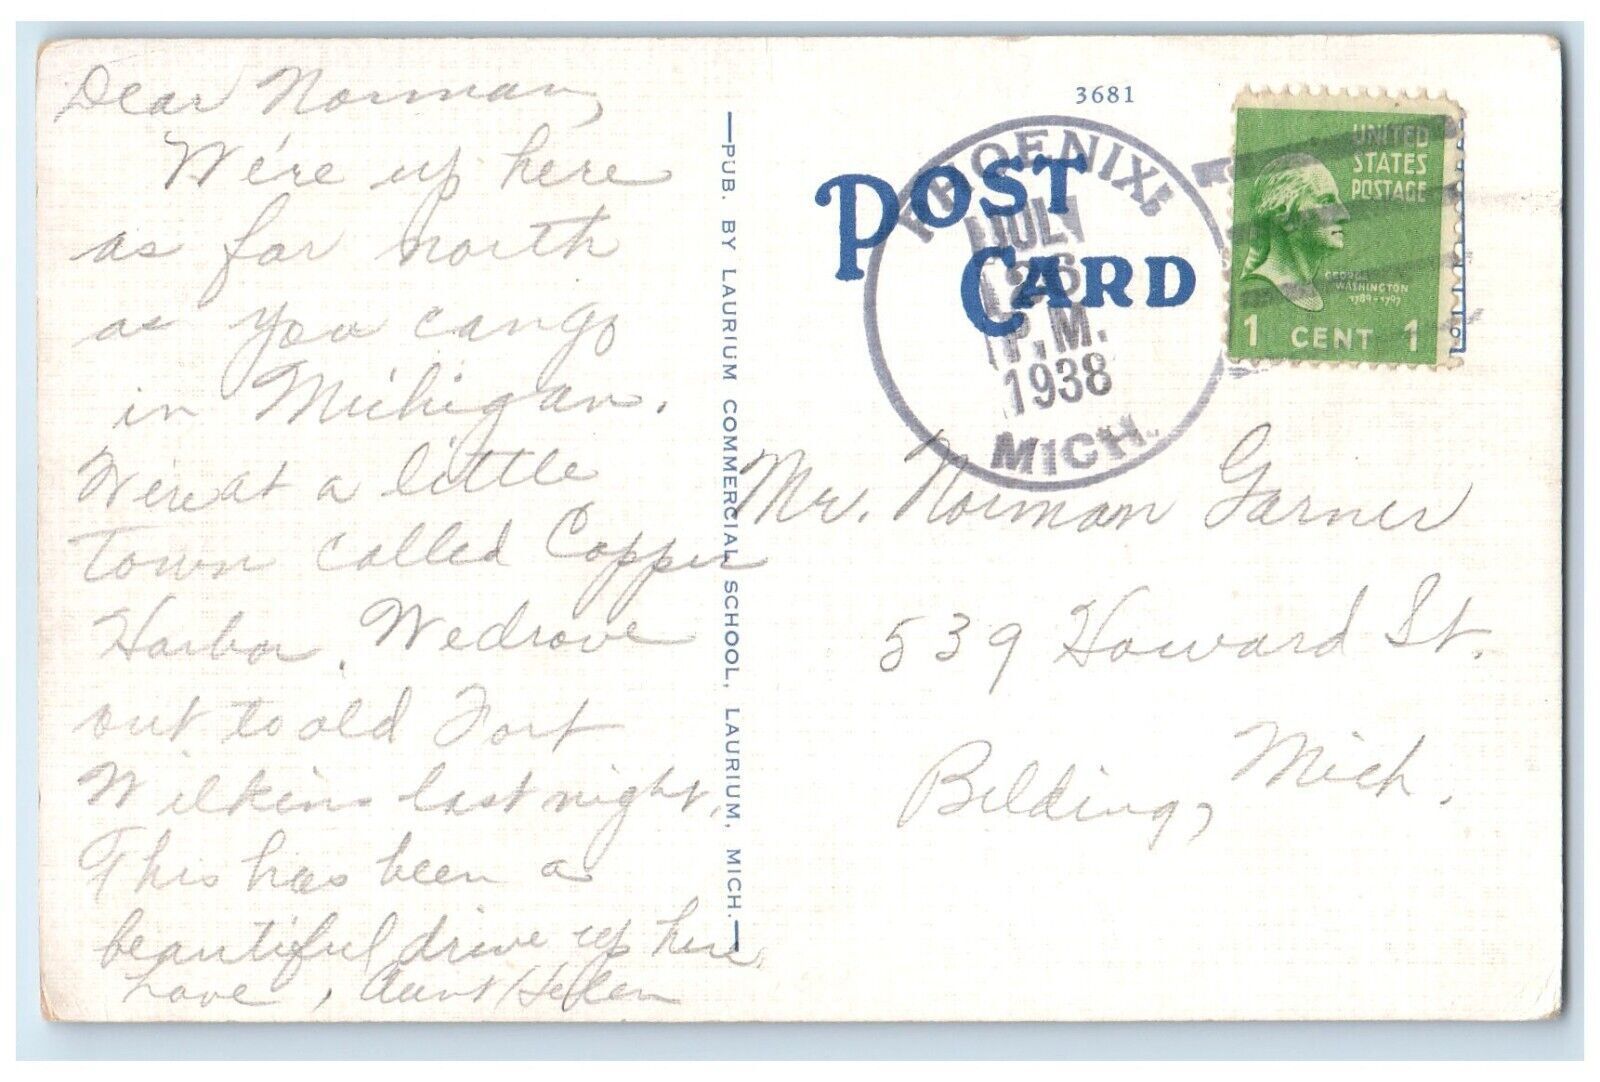 Dear Norman,
We're up here
as far north
as you can go
in Michigan.
We're at a little
town called Copper
Harbor. We drove
out to old Fort
Wilkins last night.
This has been a
beautiful drive up here
Love, Aunt Helen
PUB. BY LAURIUM COMMERCIAL SCHOOL, LAURIUM, MICH.
3681
POST
CARD
PHOENIX,
JUL
26
P.M.
1938
MICH.
UNITED
STATES
POSTAGE
GEORGE
WASHINGTON
1789-1797
1 CENT 1
Mr. Norman Garner
539 Howard St.
Belding, Mich.